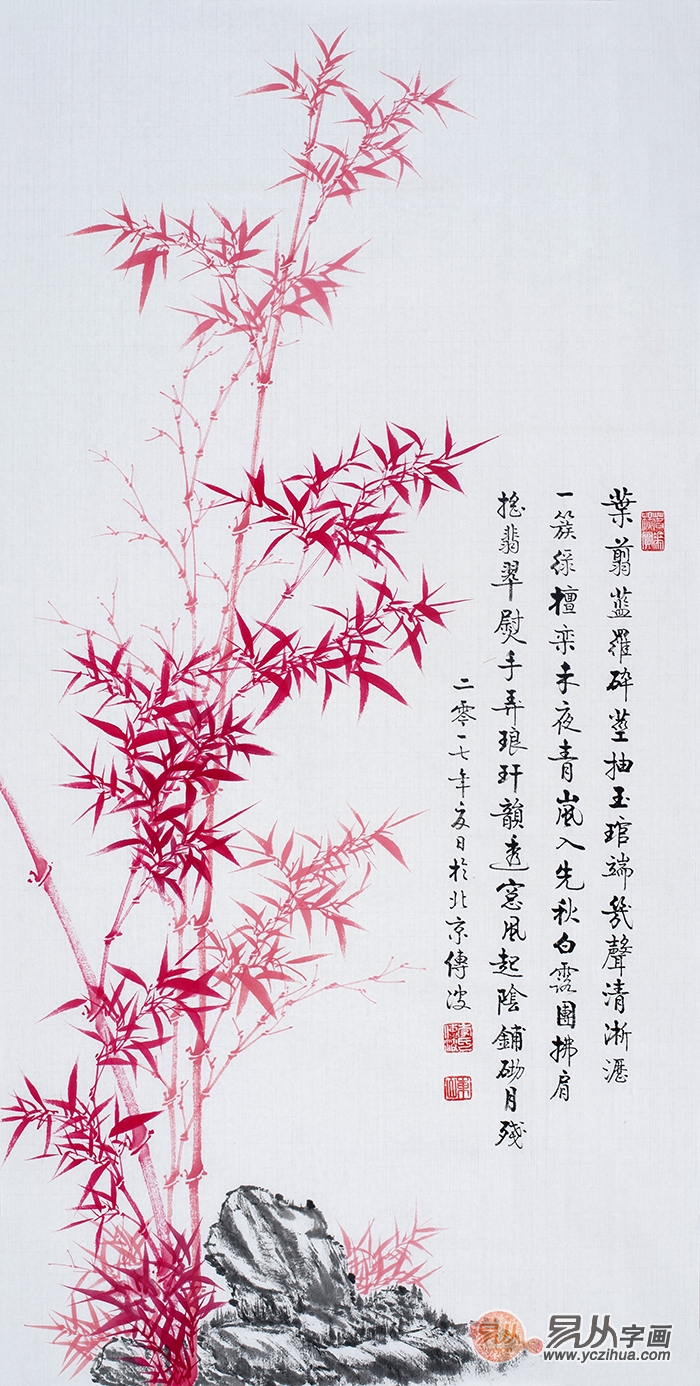 葉翦藍羅碎莖抽玉琯端幾聲清淅瀝
一簇綠檀欒未夜青嵐入先秋白露團拂肩
搖翡翠熨手弄琅玕韻透窓風起陰鋪砌月殘
二零一七年夏日於北京傳波
易从字画
www.yczihua.com